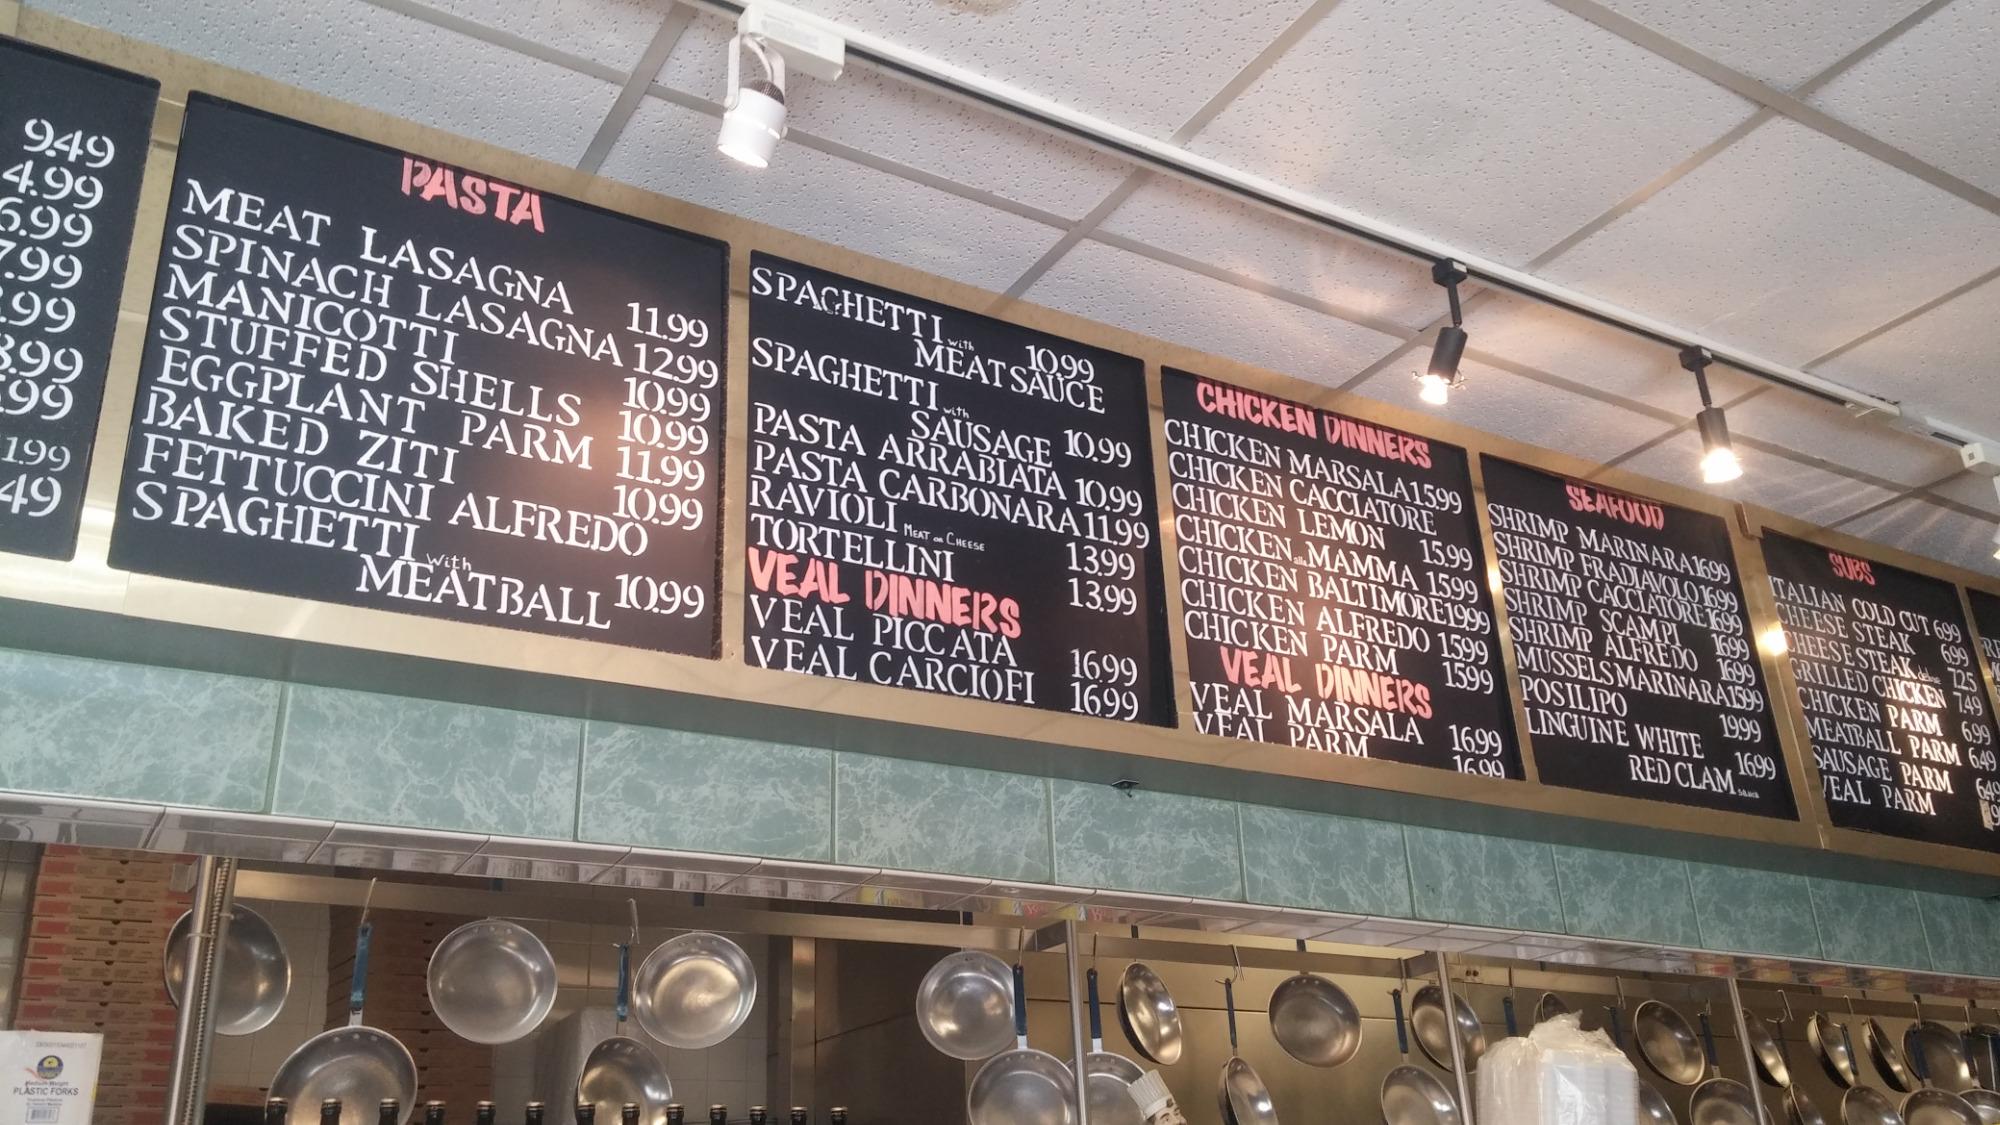 9.49
4.99
6.99
7.99
.99
8.99
.99
1.99
49
PASTA
MEAT LASAGNA 11.99
SPINACH LASAGNA 12.99
MANICOTTI 10.99
STUFFED SHELLS 10.99
EGGPLANT PARM 11.99
BAKED ZITI 10.99
FETTUCCINI ALFREDO
SPAGHETTI with
MEATBALL 10.99
SPAGHETTI with 10.99
MEAT SAUCE
SPAGHETTI with
SAUSAGE 10.99
PASTA ARRABIATA 10.99
PASTA CARBONARA 11.99
RAVIOLI MEAT or CHEESE 13.99
TORTELLINI 13.99
VEAL DINNERS
VEAL PICCATA 16.99
VEAL CARCIOFI 16.99
CHICKEN DINNERS
CHICKEN MARSALA 15.99
CHICKEN CACCIATORE
CHICKEN LEMON 15.99
CHICKEN alla MAMMA 15.99
CHICKEN BALTIMORE 19.99
CHICKEN ALFREDO 15.99
CHICKEN PARM 15.99
VEAL DINNERS
VEAL MARSALA 16.99
VEAL PARM 16.99
SEAFOOD
SHRIMP MARINARA 16.99
SHRIMP FRADIAVOLO 16.99
SHRIMP CACCIATORE 16.99
SHRIMP SCAMPI 16.99
SHRIMP ALFREDO 16.99
MUSSELS MARINARA 15.99
POSILIPO 19.99
LINGUINE WHITE 16.99
RED CLAM sauce
SUBS
ITALIAN COLD CUT 6.99
CHEESE STEAK 6.99
CHEESE STEAK deluxe 7.25
GRILLED CHICKEN 7.49
CHICKEN PARM 6.99
MEATBALL PARM 6.49
SAUSAGE PARM 6.49
VEAL PARM
Medium Weight
PLASTIC FORKS